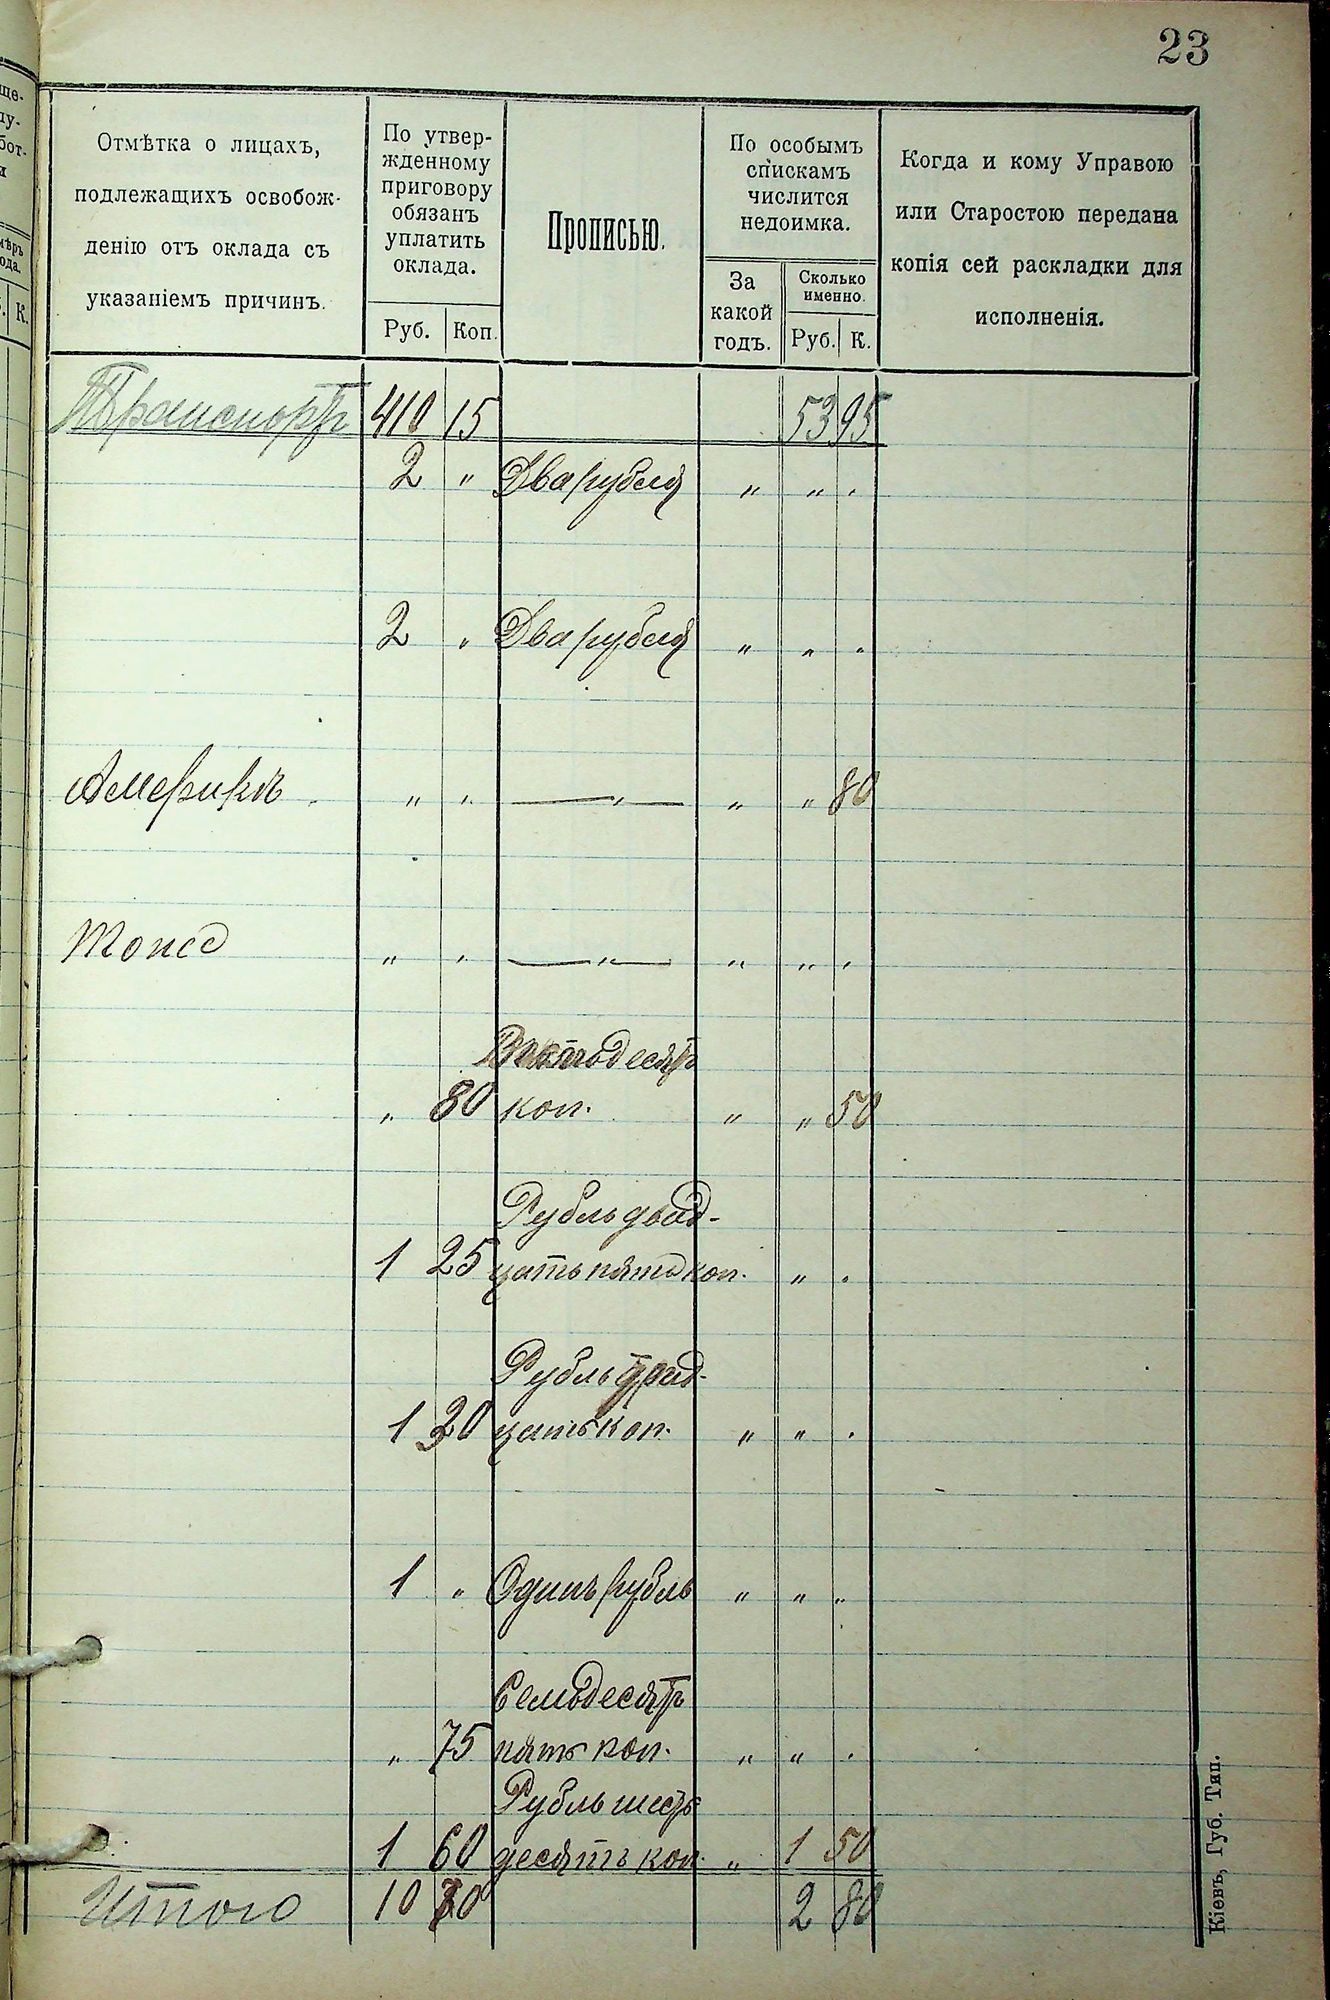 23
Отмѣтка о лицахъ,
подлежащихъ освобож-
денію отъ оклада съ
указаніемъ причинъ.
По утвер-
жденному
приговору
обязанъ
уплатить
оклада.
Руб. Коп.
Прописью.
По особымъ
спискамъ
числится
недоимка.
За
какой
годъ.
Сколько
именно.
Руб. К.
Когда и кому Управою
или Старостою передана
копія сей раскладки для
исполненія.
Транспортъ 410 15 53 95
2 " Два рубля " " "
2 " Два рубля " " "
Америкѣ " " — " — " " 80
Тоже " " — " — " " "
десятъ
" 80 коп. " " 50
Рубль двад-
1 25 цать пять коп. " "
Рубль трид-
1 30 цать коп. " " "
1 " Одинъ рубль " " "
Семьдесятъ
" 75 пять коп. " " "
Рубль шесть
1 60 десятъ коп. " 1 50
Итого 10 70 2 80
Кіевъ, Губ. Тип.